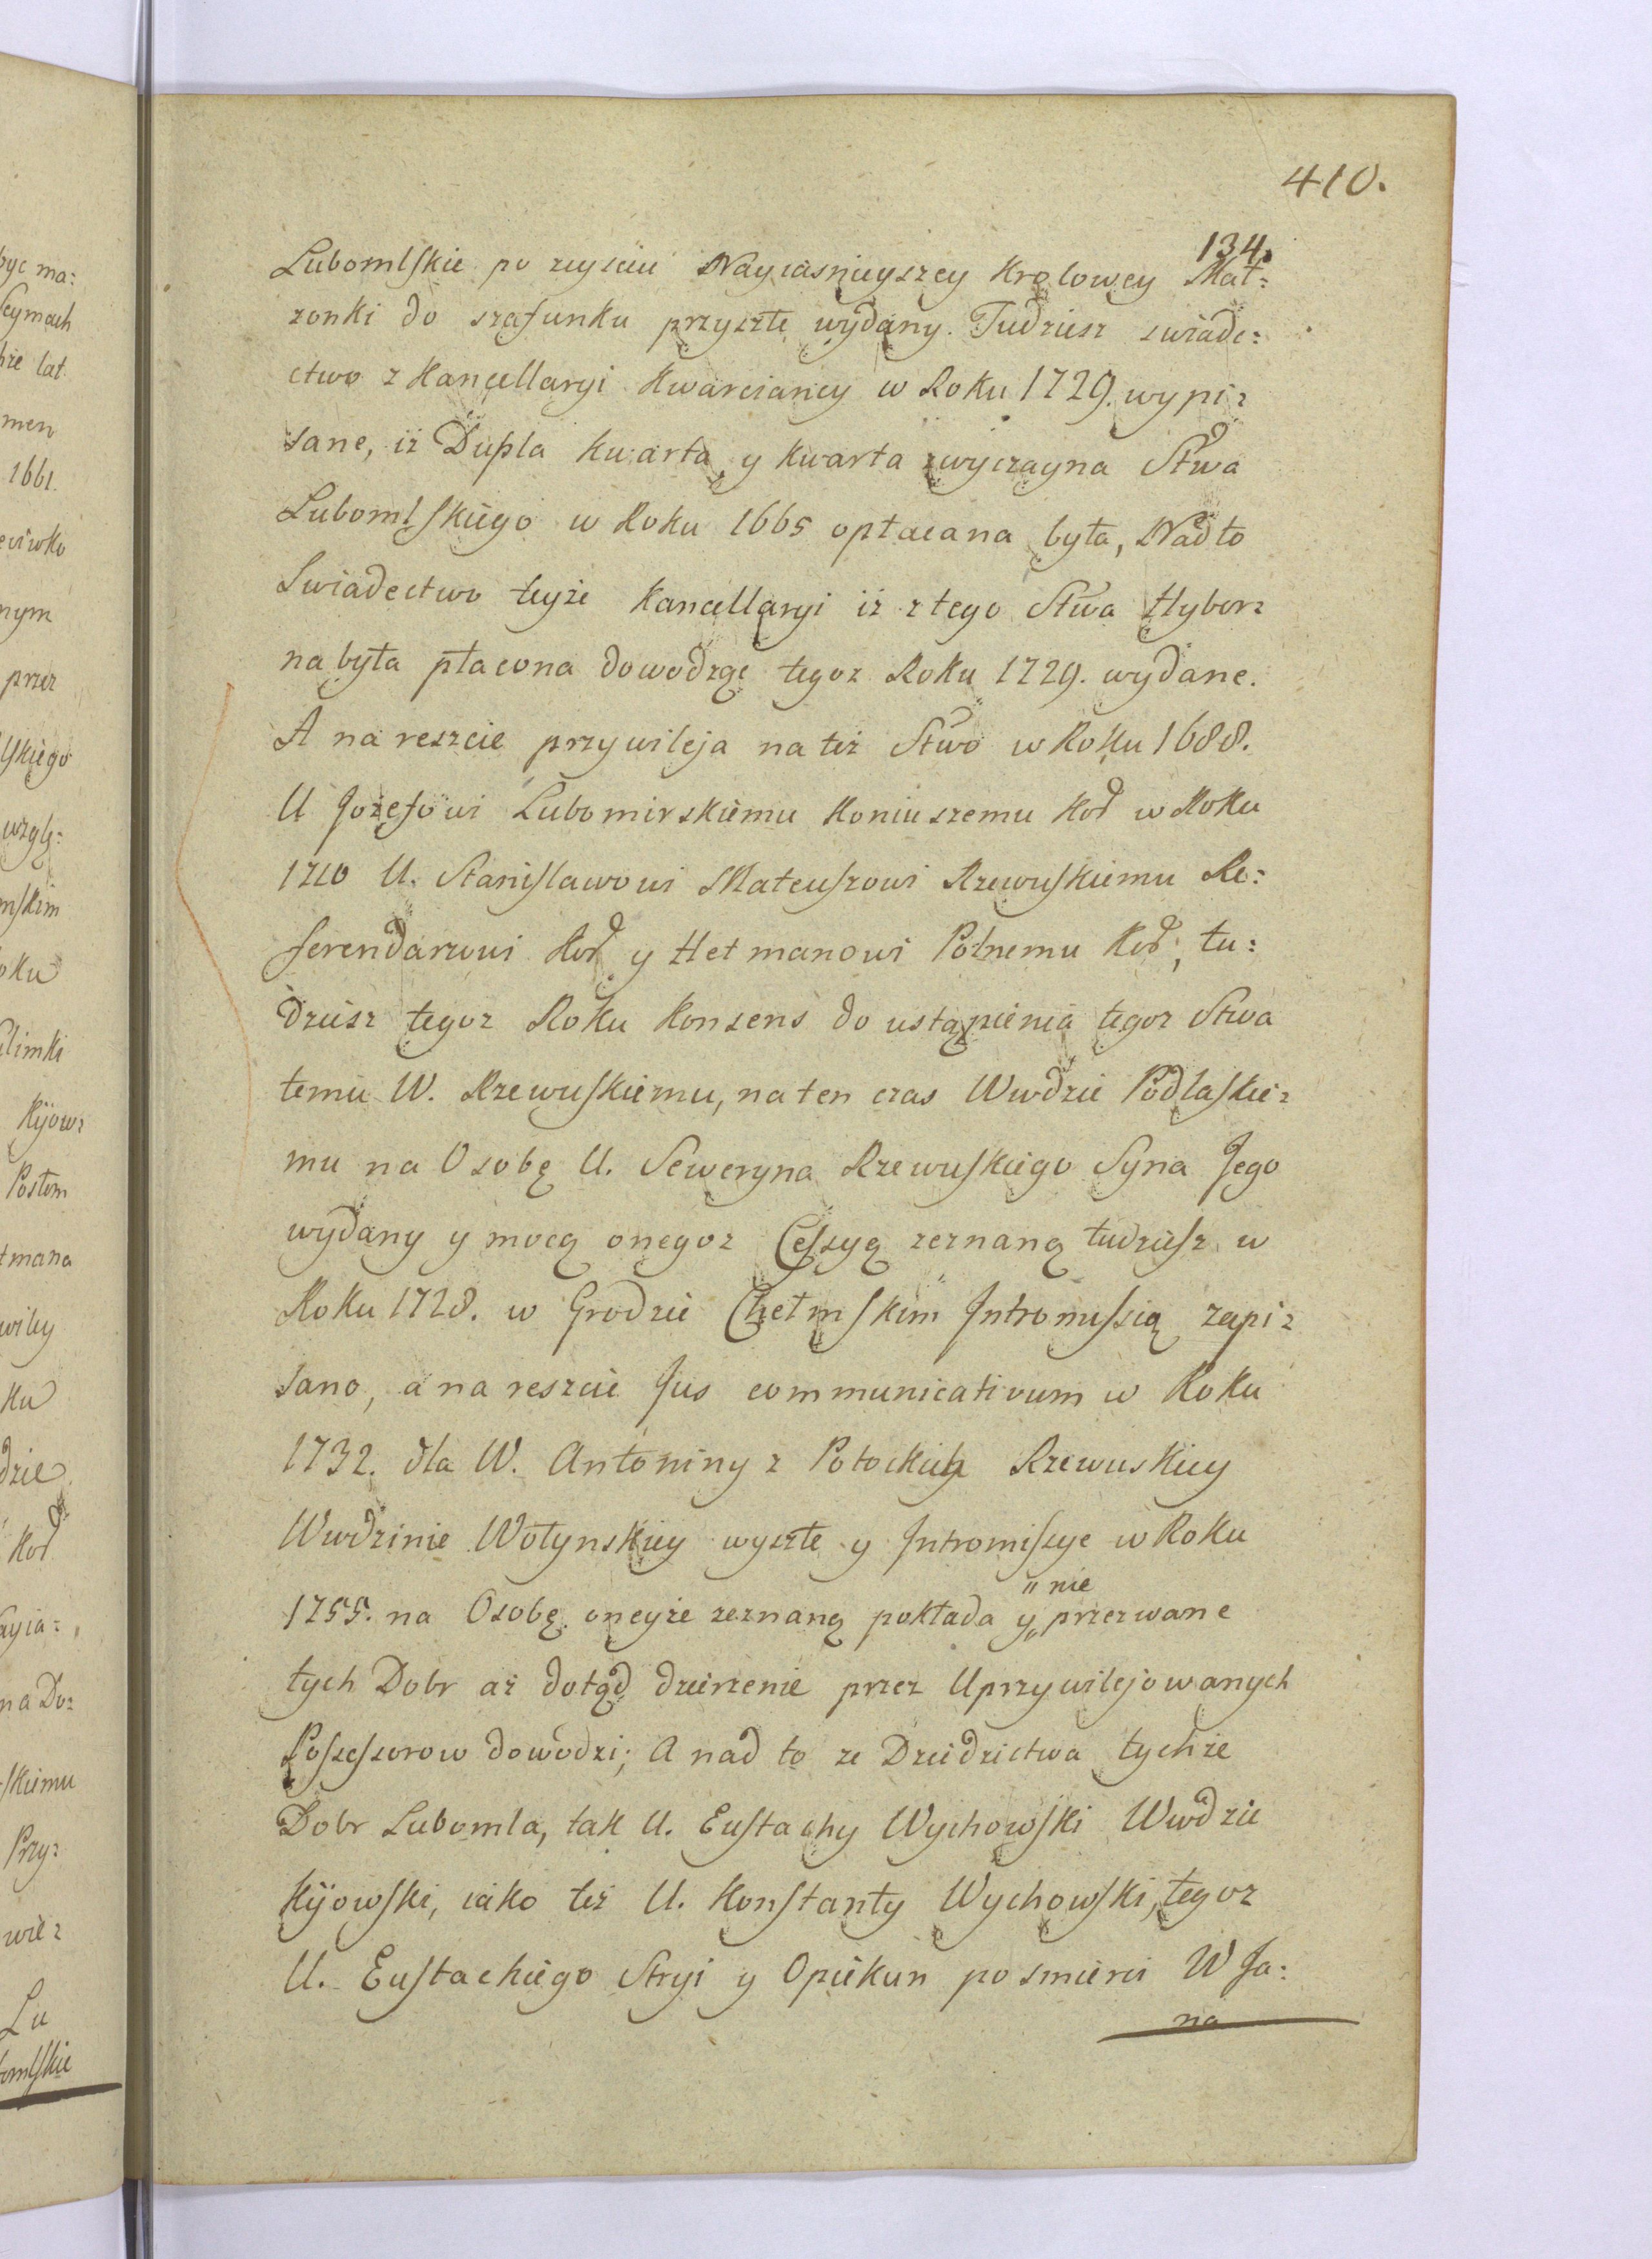 410.
134.
Lubomlskie po zeysciu Nayiasnieyszey Krolowey Mał:
zonki do szafunku przyszłe wydany. Tudziesz swiade:
ctwo z Kancellaryi Kwarcianey w Roku 1729. wypi:
sane, iż Dupla kwarta y kwarta zwyczayna Stwa
Lubomlskiego w Roku 1665 opłacana była, Nadto
Swiadectwo teyże Kancellaryi iż z tego Stwa Hyber:
na była płacona dowodzące tegoz Roku 1729. wydane.
A na reszcie przywileja na też Stwo w Roku 1688.
U Jozefowi Lubomirskiemu Koniuszemu Kor w Roku
1710 U. Stanisławowi Mateuszowi Rzewuskiemu Re:
ferendarzowi Kor y Hetmanowi Polnemu Kor; tu:
dziesz tegoz Roku Konsens do ustąpienia tegoz Stwa
temu W. Rzewuskiemu, na ten czas Wwdzie Podlaskie:
mu na Osobę U. Seweryna Rzewuskiego Syna Jego
wydany y mocą onegoz Cessyą zeznaną tudziesz w
Roku 1728. w Grodzie Chełmskim Intromissią zapi:
sano, a na reszcie Jus communicativum w Roku
1732. dla W. Antoniny z Potockich Rzewuskiey
Wwdzinie Wołynskiey wyszłe y Intromissye w Roku
1755. na Osobę oneyże zeznaną pokłada y nie przerwane
tych Dobr aż dotąd dzierżenie przez Uprzywilejowanych
Possessorow dowodzi; A nad to ze Dziedzictwa tychże
Dobr Lubomla, tak U. Eustachy Wychowski Wwdzie
Kijowski, iako też U. Konstanty Wychowski, tegoz
U. Eustachiego Stryi y Opiekun po smierci W Ja:
na